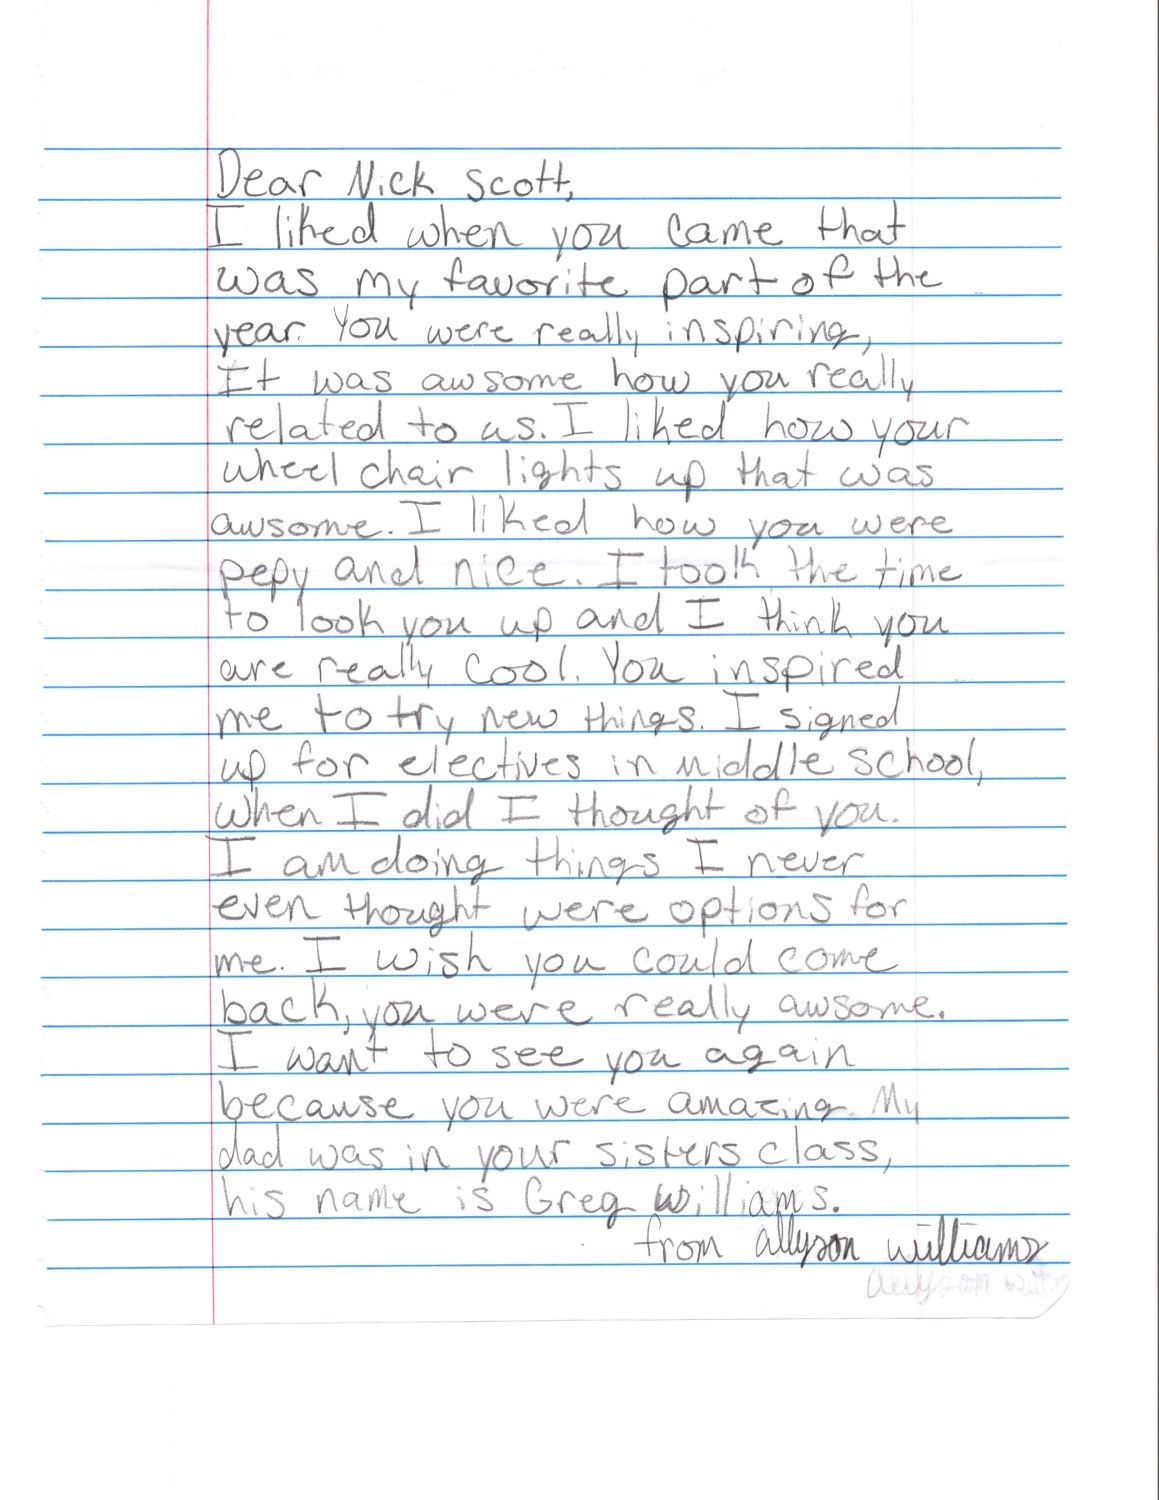 Dear Nick Scott,
I liked when you came that
was my favorite part of the
year. You were really inspiring,
It was awsome how you really
related to us. I liked how your
wheel chair lights up that was
awsome. I liked how you were
pepy and nice. I took the time
to look you up and I think you
are really cool. You inspired
me to try new things. I signed
up for electives in middle school,
when I did I thought of you.
I am doing things I never
even thought were options for
me. I wish you could come
back, you were really awsome.
I want to see you again
because you were amazing. My
dad was in your sisters class,
his name is Greg Williams.
from allyson williams
allyson